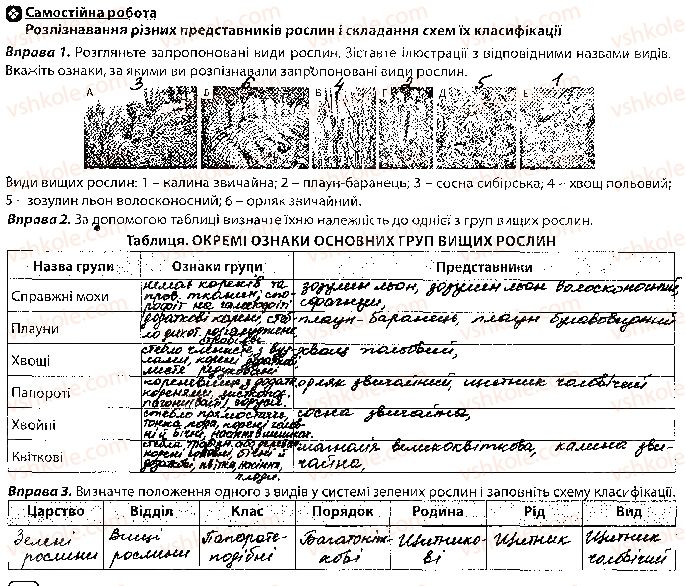 Самостійна робота
Розпізнавання різних представників рослин і складання схем їх класифікації
Вправа 1. Розгляньте запропоновані види рослин. Зіставте ілюстрації з відповідними назвами видів.
Вкажіть ознаки, за якими ви розпізнавали запропоновані види рослин.
А 3 Б 6 В 4 Г 2 Д 5 Е 1
Види вищих рослин: 1 – калина звичайна; 2 – плаун-баранець; 3 – сосна сибірська; 4 – хвощ польовий;
5 - зозулин льон волосконосний; 6 – орляк звичайний.
Вправа 2. За допомогою таблиці визначте їхню належність до однієї з груп вищих рослин.
Таблиця. ОКРЕМІ ОЗНАКИ ОСНОВНИХ ГРУП ВИЩИХ РОСЛИН
Назва групи Ознаки групи Представники
Справжні мохи немає коренів та зозулин льон, зозулин льон волосконосний,
пров. тканин, спо-
сфагнум,
Плауни додаткові корені, стеб- плаун-баранець, плаун булавовидний
Хвощі стебло членисте з вуз- хвощ польовий,
лами, корені додаткові,
листя редуковані
Папороті кореневище з додатк. орляк звичайний, щитник чоловічий
коренями, листкопад.
Хвойні стебло прямостояче, сосна звичайна,
тонка кора, корені голов-
ні й бічні, насіння в шишках
Квіткові магнолія великоквіткова, калина зви-
корені головні, бічні й чайна,
додаткові, квітка, насіння,
плоди.
Вправа 3. Визначте положення одного з видів у системі зелених рослин і заповніть схему класифікації.
Царство Відділ Клас Порядок Родина Рід Вид
Зелені Вищі Папороте- Багатоніж- Щитнико- Щитник Щитник
рослини рослини подібні кові ві чоловічий